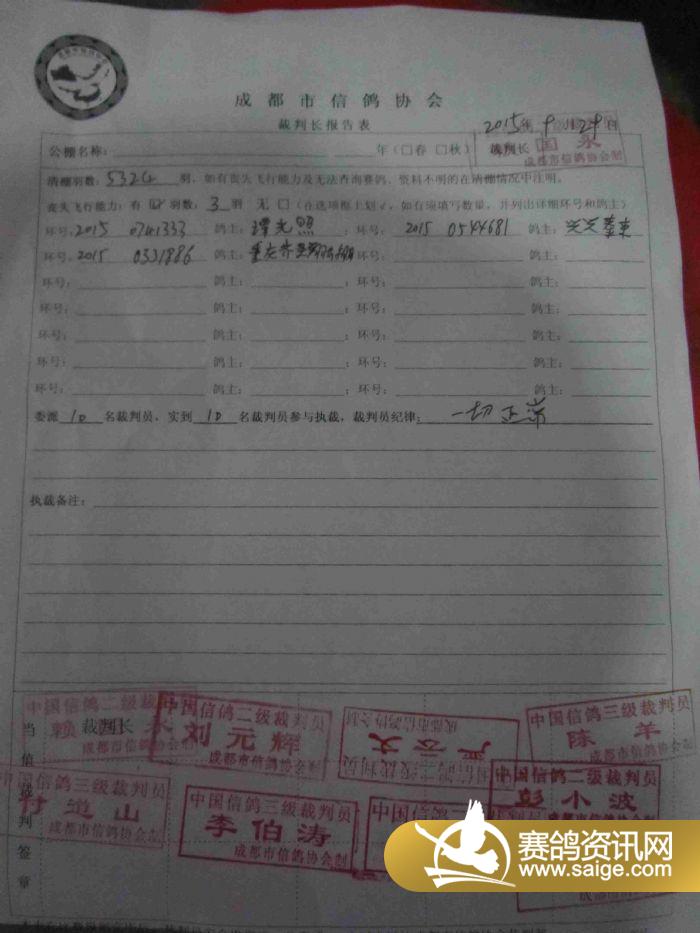 成都市信鸽协会
裁判长报告表
2015年9月29日
公棚名称： 年（□春 □秋） 裁判长
成都市信鸽协会制
清棚羽数：5324 羽，如有丧失飞行能力及无法查询赛鸽、资料不明的在清棚情况中注明。
丧失飞行能力：有 ☑ 羽数：3 羽 无 □（在选项框上划√，如有须填写数量，并列出详细环号和鸽主）
环号：2015 0741333 鸽主：谭光照 ；环号： 2015 0544681 鸽主：
环号：2015 0331886 鸽主： ；环号： 鸽主：
环号： 鸽主： ；环号： 鸽主：
环号： 鸽主： ；环号： 鸽主：
环号： 鸽主： ；环号： 鸽主：
环号： 鸽主： ；环号： 鸽主：
环号： 鸽主： ；环号： 鸽主：
委派 10 名裁判员，实到 10 名裁判员参与执裁，裁判员纪律： 一切正常
执裁备注：
当值裁判签章
裁判长
中国信鸽二级裁判员
赖 永
成都市信鸽协会制
中国信鸽二级裁判员
刘元辉
成都市信鸽协会制
中国信鸽二级裁判员
成都市信鸽协会制
中国信鸽三级裁判员
陈 羊
成都市信鸽协会制
中国信鸽三级裁判员
付道山
成都市信鸽协会制
中国信鸽三级裁判员
李伯涛
成都市信鸽协会制
中国信鸽二级裁判员
彭小波
赛鸽资讯网
www.saige.com